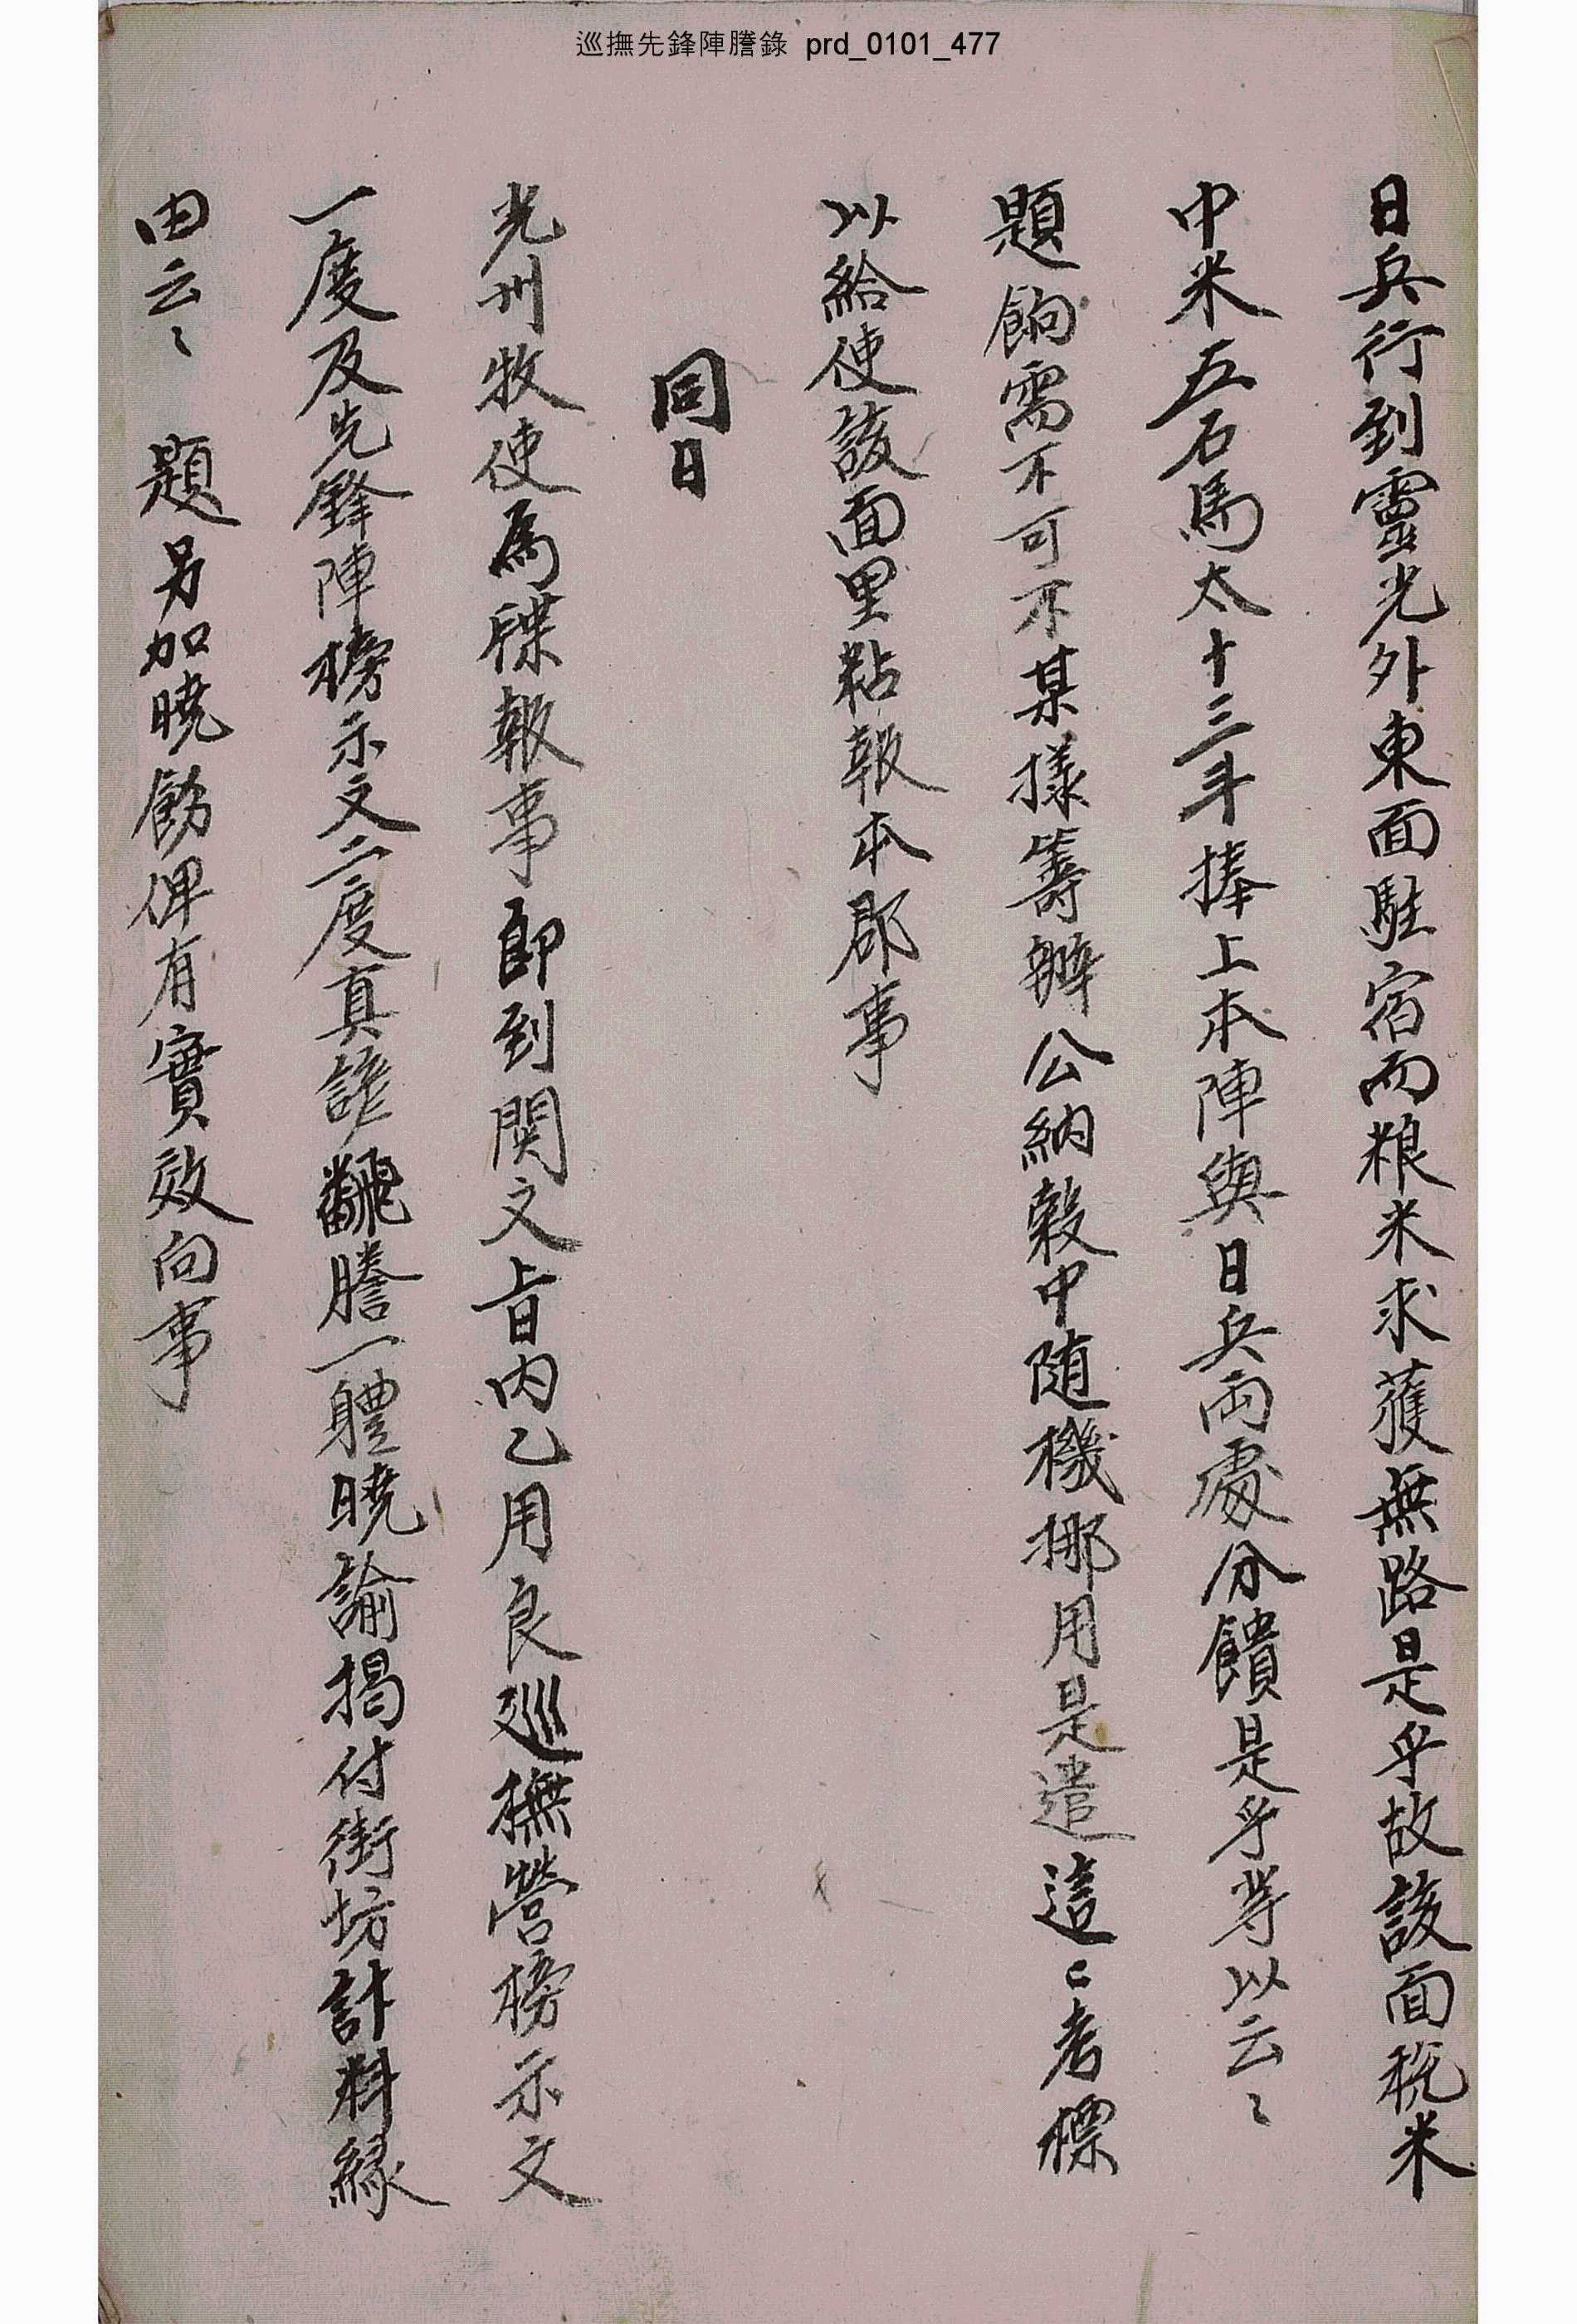 巡撫先鋒陣謄錄 prd_0101_477
日兵行到靈光外東面駐宿而粮米求獲無路是乎故該面稅米
中米五石馬太十三斗捧上本陣與日兵兩處分饋是乎等以云〻
題餉需不可不某樣籌辦公納穀中随機挪用是遣這〻考標
以給使該面里粘報本郡事
同日
光州牧使為牒報事卽到関文旨內乙用良巡撫營榜示文
一度及先鋒陣榜示文二度真諺飜謄一軆曉諭揭付街坊計料緣
由云〻 題另加曉飭俾有實效向事